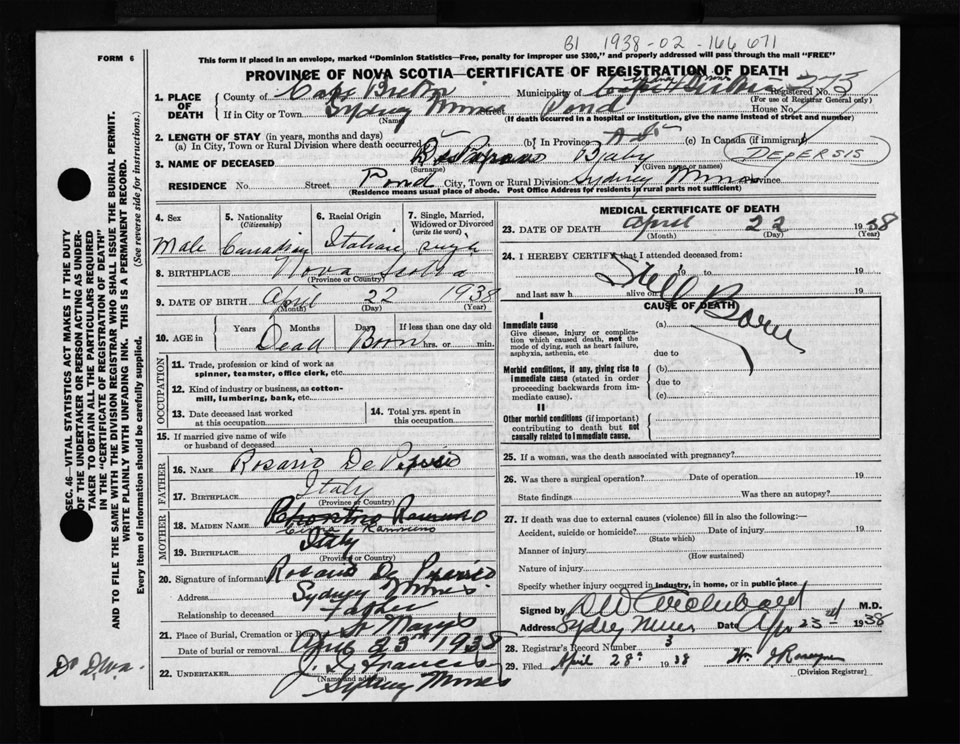 B1 1938-02-166 671
FORM 6
This form if placed in an envelope, marked "Dominion Statistics—Free, penalty for improper use $300," and properly addressed will pass through the mail "FREE"
PROVINCE OF NOVA SCOTIA—CERTIFICATE OF REGISTRATION OF DEATH
1. PLACE OF DEATH
County of Cape Breton Municipality of Sydney Mines Registered No. 273
(For use of Registrar General only)
If in City or Town Sydney Mines Street Pond House No.
(Name) (If death occurred in a hospital or institution, give the name instead of street and number)
2. LENGTH OF STAY (in years, months and days)
(a) In City, Town or Rural Division where death occurred (b) In Province (c) In Canada (if immigrant)
3. NAME OF DECEASED Baby DEPERSIS
(Surname) (Given name or names)
RESIDENCE No. Street Pond City, Town or Rural Division Sydney Mines Province
(Residence means usual place of abode. Post Office Address for residents in rural parts not sufficient)
4. Sex Male
5. Nationality (Citizenship) Canadian
6. Racial Origin Italian
7. Single, Married, Widowed or Divorced (write the word) single
8. BIRTHPLACE Nova Scotia
(Province or Country)
9. DATE OF BIRTH April 22 1938
(Month) (Day) (Year)
10. AGE in Years Months Days If less than one day old
Dead Born hrs. or min.
OCCUPATION
11. Trade, profession or kind of work as spinner, teamster, office clerk, etc.
12. Kind of industry or business, as cotton-mill, lumbering, bank, etc.
13. Date deceased last worked at this occupation
14. Total yrs. spent in this occupation
15. If married give name of wife or husband of deceased
FATHER
16. NAME Rosario De
17. BIRTHPLACE Italy
(Province or Country)
MOTHER
18. MAIDEN NAME
19. BIRTHPLACE Italy
(Province or Country)
20. Signature of informant Rosario De
Address Sydney Mines
Relationship to deceased Father
21. Place of Burial, Cremation or Removal St Marys
Date of burial or removal April 23rd 1938
22. UNDERTAKER Francis
(Name and address)
Sydney Mines
MEDICAL CERTIFICATE OF DEATH
23. DATE OF DEATH April 22 1938
(Month) (Day) (Year)
24. I HEREBY CERTIFY that I attended deceased from:
19 to 19
and last saw h alive on 19
Still Born
CAUSE OF DEATH
I
Immediate cause (a)
Give disease, injury or complication which caused death, not the mode of dying, such as heart failure, asphyxia, asthenia, etc
due to
Morbid conditions, if any, giving rise to immediate cause (stated in order proceeding backwards from immediate cause). (b)
due to
(c)
II
Other morbid conditions (if important) contributing to death but not causally related to immediate cause.
25. If a woman, was the death associated with pregnancy?
26. Was there a surgical operation? Date of operation 19
State findings Was there an autopsy?
27. If death was due to external causes (violence) fill in also the following:—
Accident, suicide or homicide? Date of injury 19
(State which)
Manner of injury
(How sustained)
Nature of injury
Specify whether injury occurred in industry, in home, or in public place
Signed by D W Archibald M.D.
Address Sydney Mines Date Apr 23rd 1938
28. Registrar's Record Number 3
29. Filed April 28th 1938 Wm J
(Division Registrar)
SEC. 46—VITAL STATISTICS ACT MAKES IT THE DUTY
OF THE UNDERTAKER OR PERSON ACTING AS UNDERTAKER TO OBTAIN ALL THE PARTICULARS REQUIRED
IN THE "CERTIFICATE OF REGISTRATION OF DEATH"
AND TO FILE THE SAME WITH THE DIVISION REGISTRAR WHO SHALL ISSUE THE BURIAL PERMIT.
WRITE PLAINLY WITH UNFADING INK. THIS IS A PERMANENT RECORD.
Every item of information should be carefully supplied. (See reverse side for instructions.)